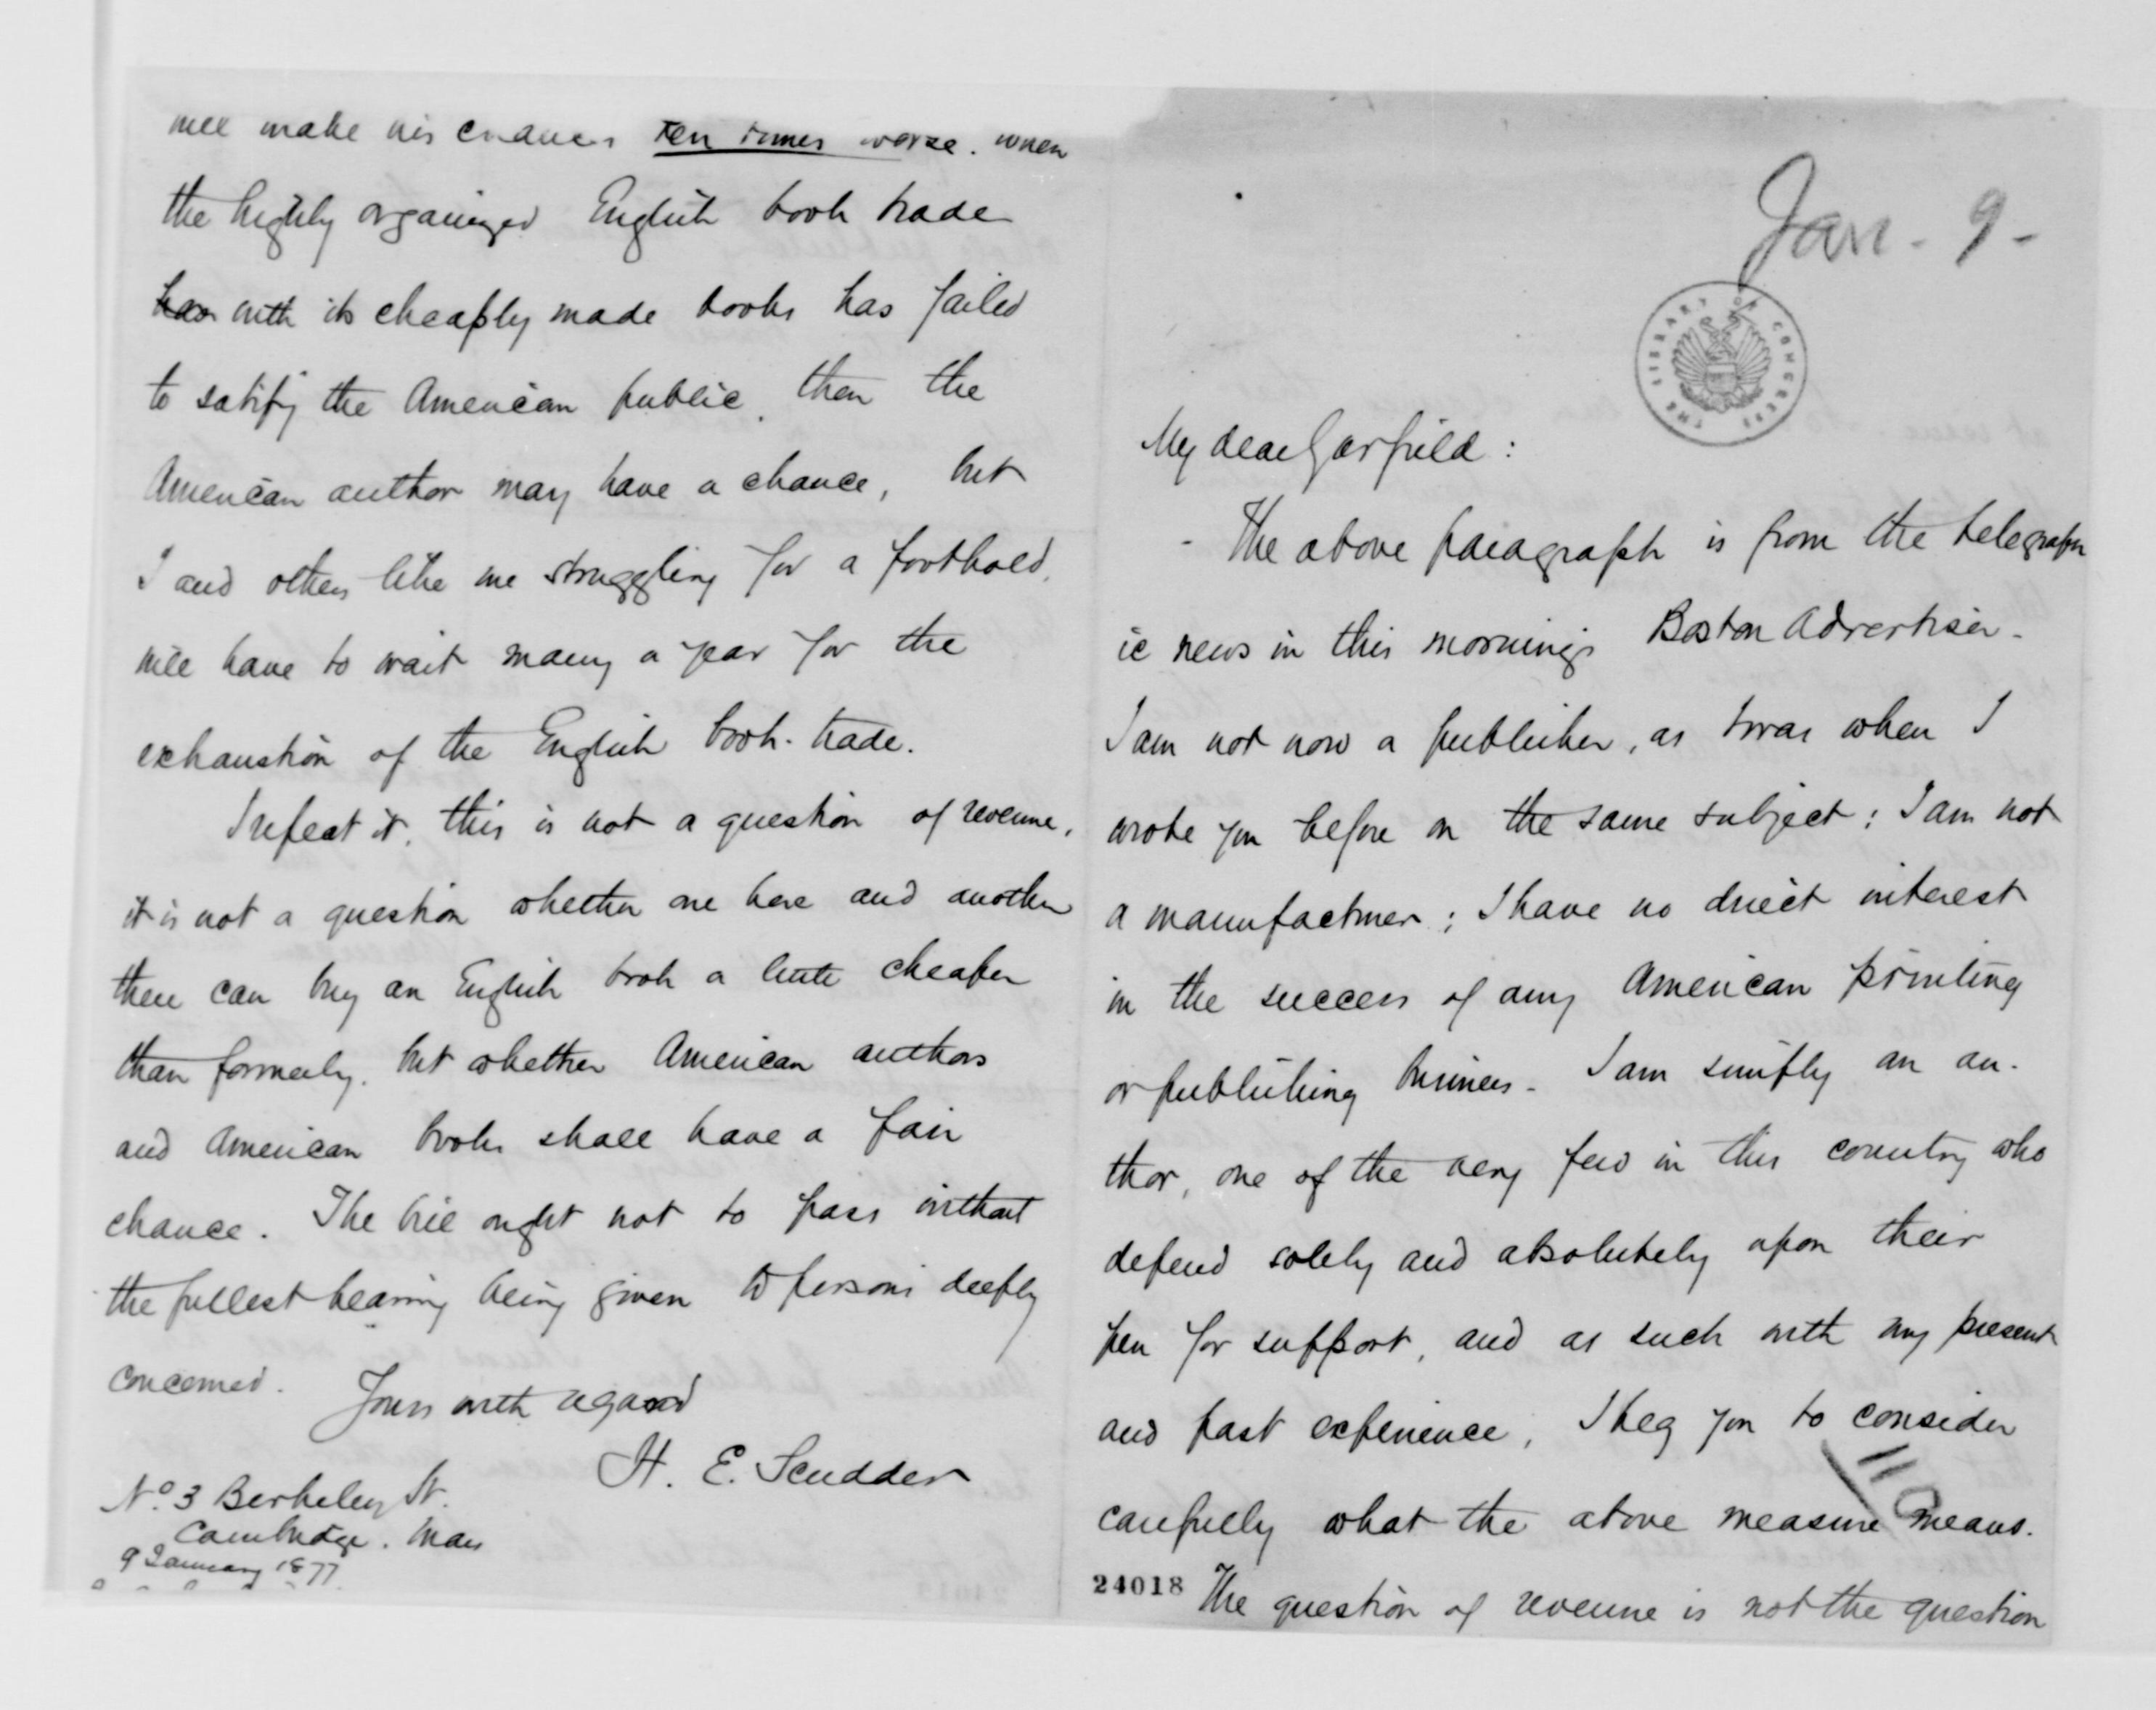 will make his chances ten times worse. When
the highly organized English book trade
has with its cheaply made books has failed
to satify the American public, then the
American author may have a chance, but
I and others like me struggling for a foothold,
will have to wait many a year for the
exhaustion of the English book-trade.
I repeat it, this is not a question of revenue,
it is not a question whether one here and another
there can buy an English book a little cheaper
than formerly, but whether American authors
and American books shall have a fair
chance. The bill ought not to pass without
the fullest hearing being given to persons deeply
concerned.
Yours with regard
H. E. Scudder
No. 3 Berkeley St.
Cambridge. Mass
9 January 1877
Jan. 9-
THE LIBRARY OF CONGRESS
My dear Garfield:
- The above paragraph is from the telegraph
ic news in this morning's Boston Advertiser-
I am not now a publisher, as I was when I
wrote you before on the same subject; I am not
a manufacturer; I have no direct interest
in the success of any American printing
or publishing business- I am simply an au-
thor, one of the very few in this country who
depend solely and absolutely upon their
pen for support, and as such with my present
and past experience, I beg you to consider
carefully what the above measure means.
24018
The question of revenue is not the question